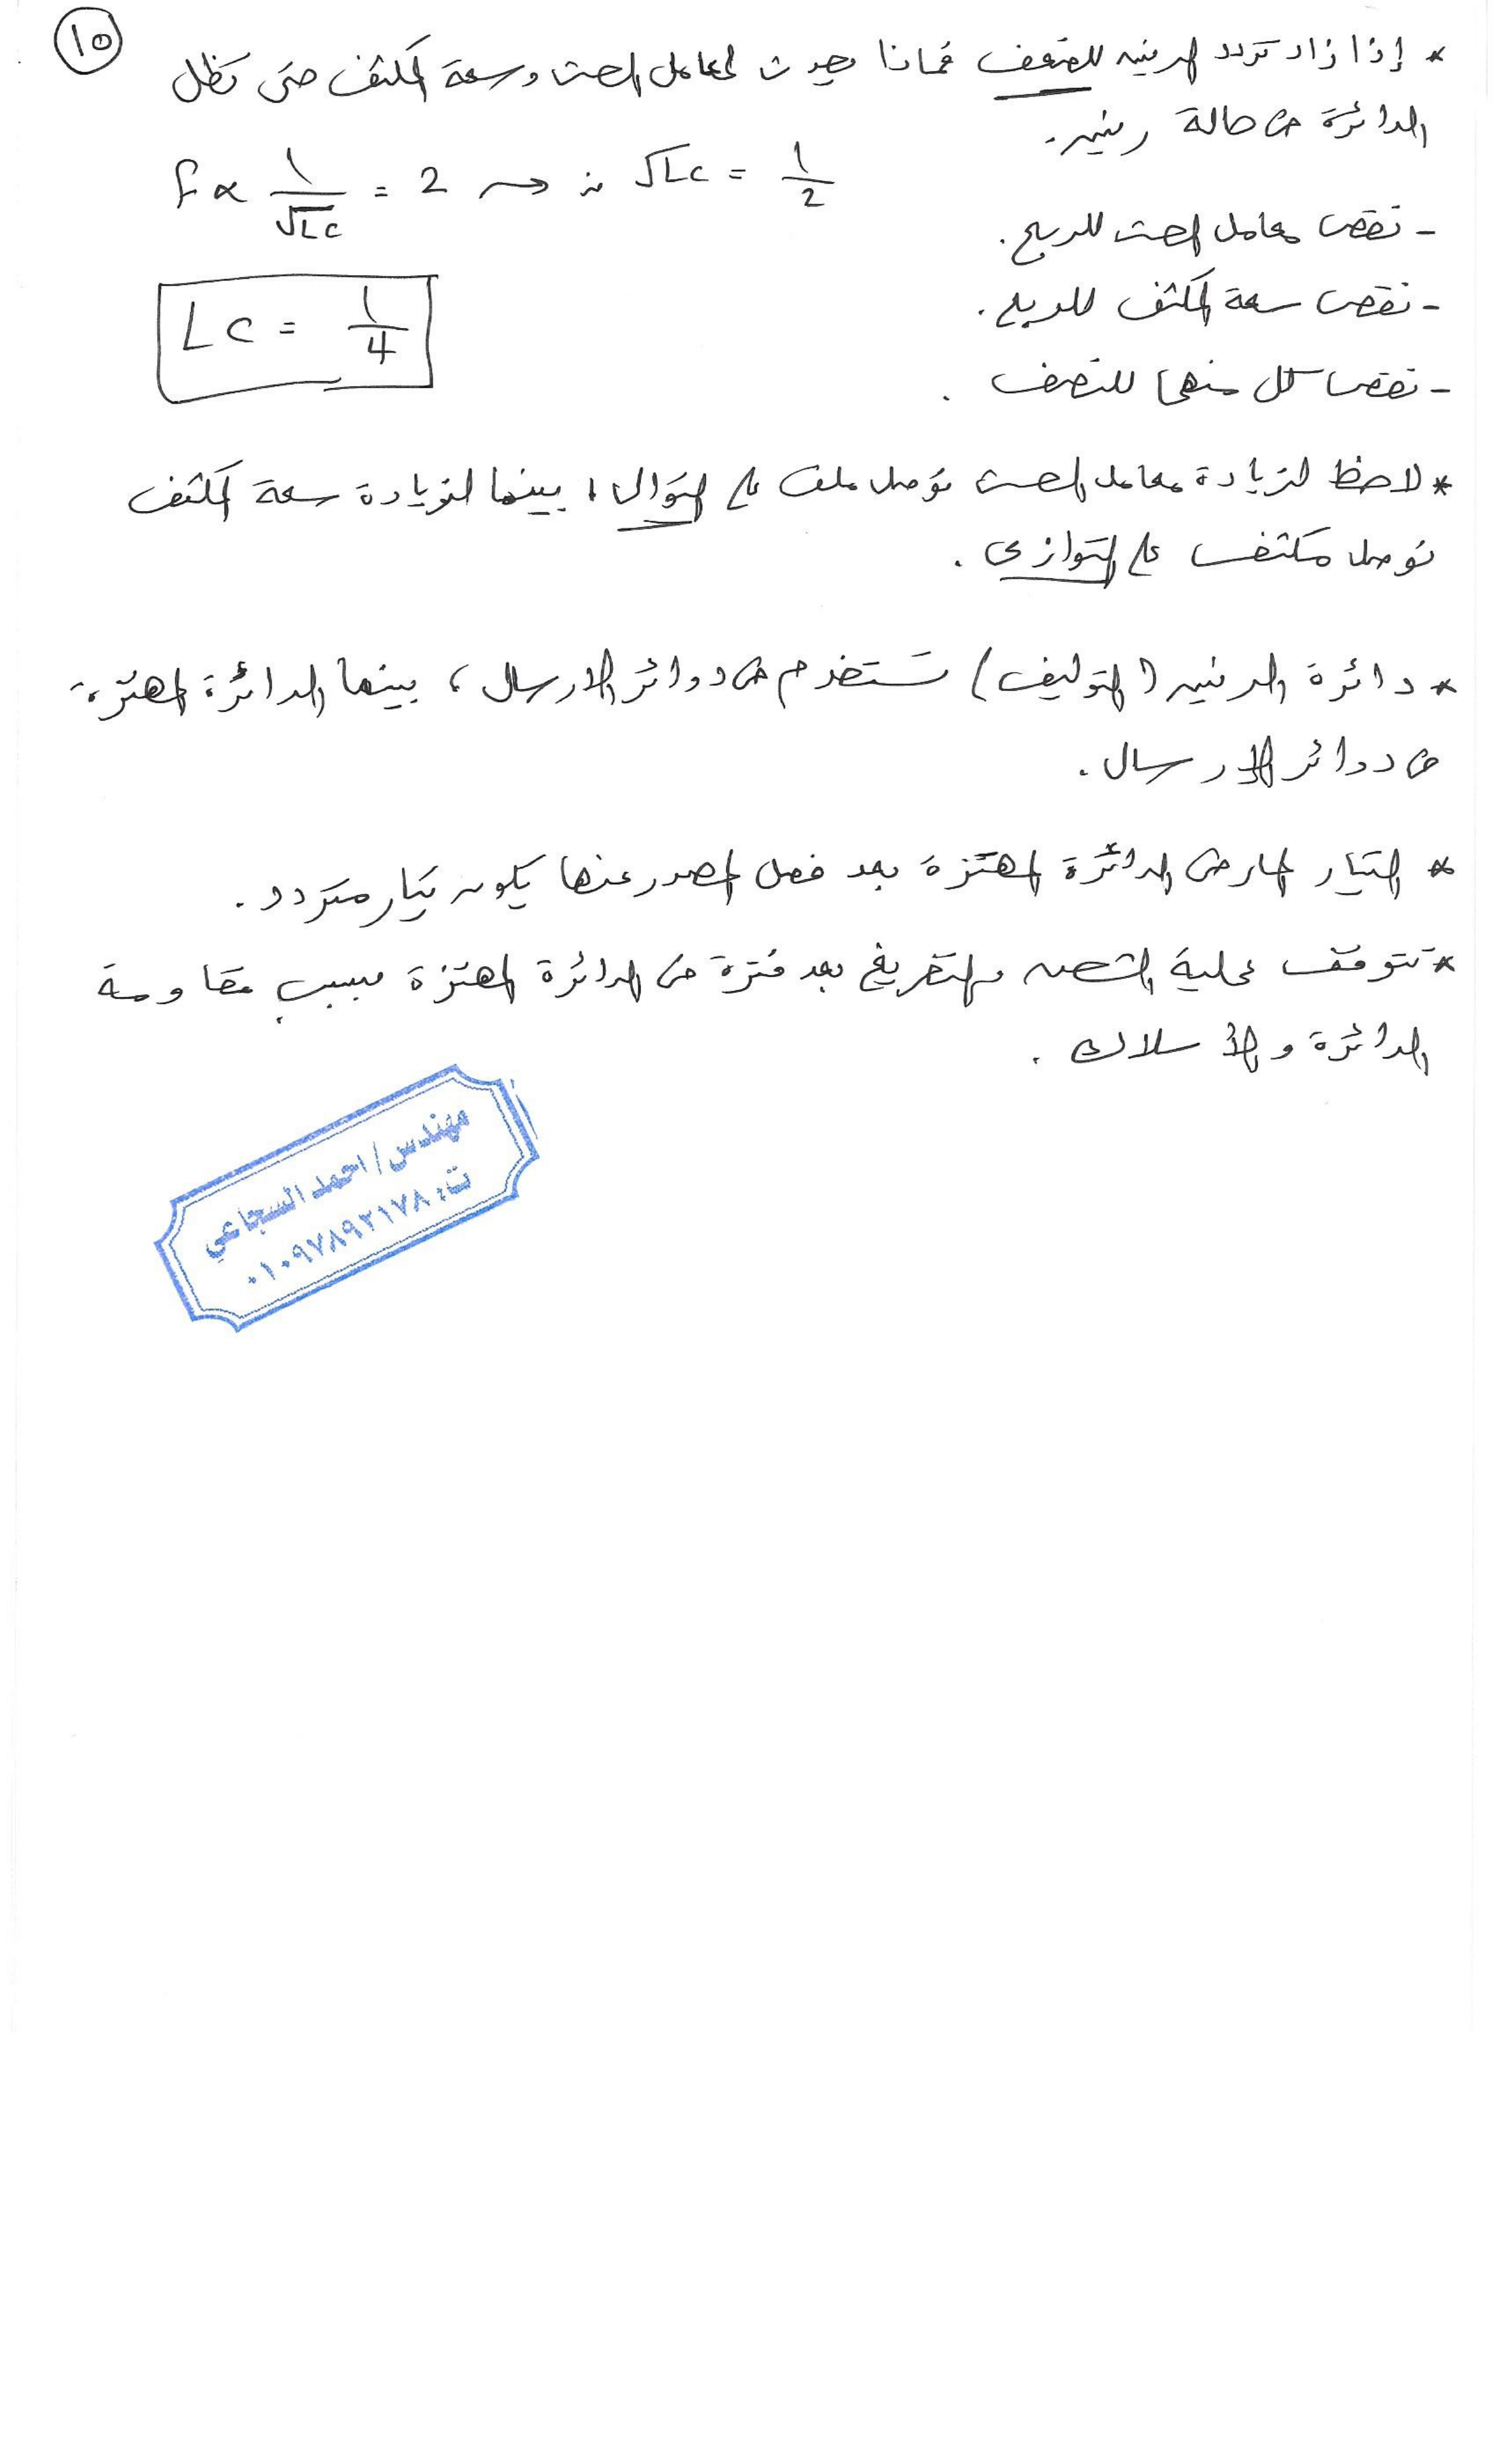 ١٥
* إذا زاد تردد الرنين للضعف فماذا يحدث لمعامل الحث وسعة المكثف حتى تظل
الدائرة في حالة رنين.
f ∝ 1/√LC = 2 → ∴ √LC = 1/2
- نقص معامل الحث للربع.
LC = 1/4
- نقص سعة المكثف للربع.
- نقص كل منهما للنصف.
* لاحظ لزيادة معامل الحث نوصل ملف على التوالى، بينما لزيادة سعة المكثف
نوصل مكثف على التوازى.
* دائرة الرنين (التوليف) تستخدم في دوائر الارسال، بينما الدائرة المهتزة
في دوائر الإرسال.
* التيار المار في الدائرة المهتزة بعد فصل المصدر عنها يكون تيار متردد.
* تتوقف عملية الشحن والتفريغ بعد فترة في الدائرة المهتزة بسبب مقاومة
الدائرة والأسلاك.
مهندس/احمد السجاعي
ت: ٠١٠٩٧٨٩٢١٧٨